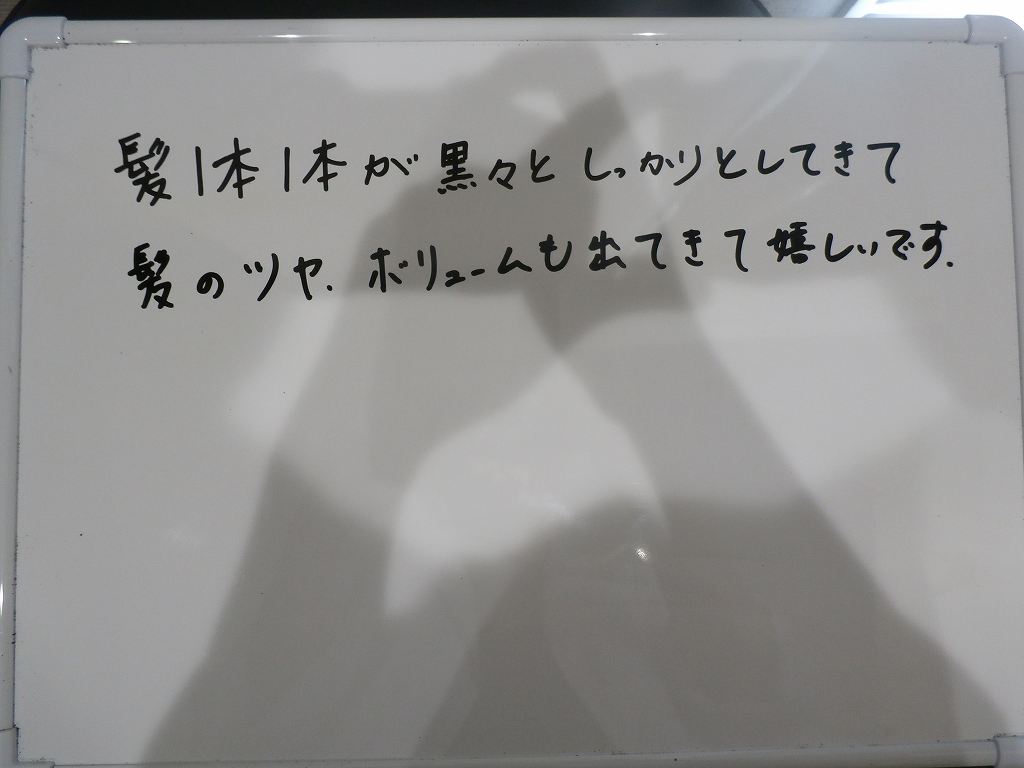 髪1本1本が黒々としっかりとしてきて
髪のツヤ.ボリュームも出てきて嬉しいです.